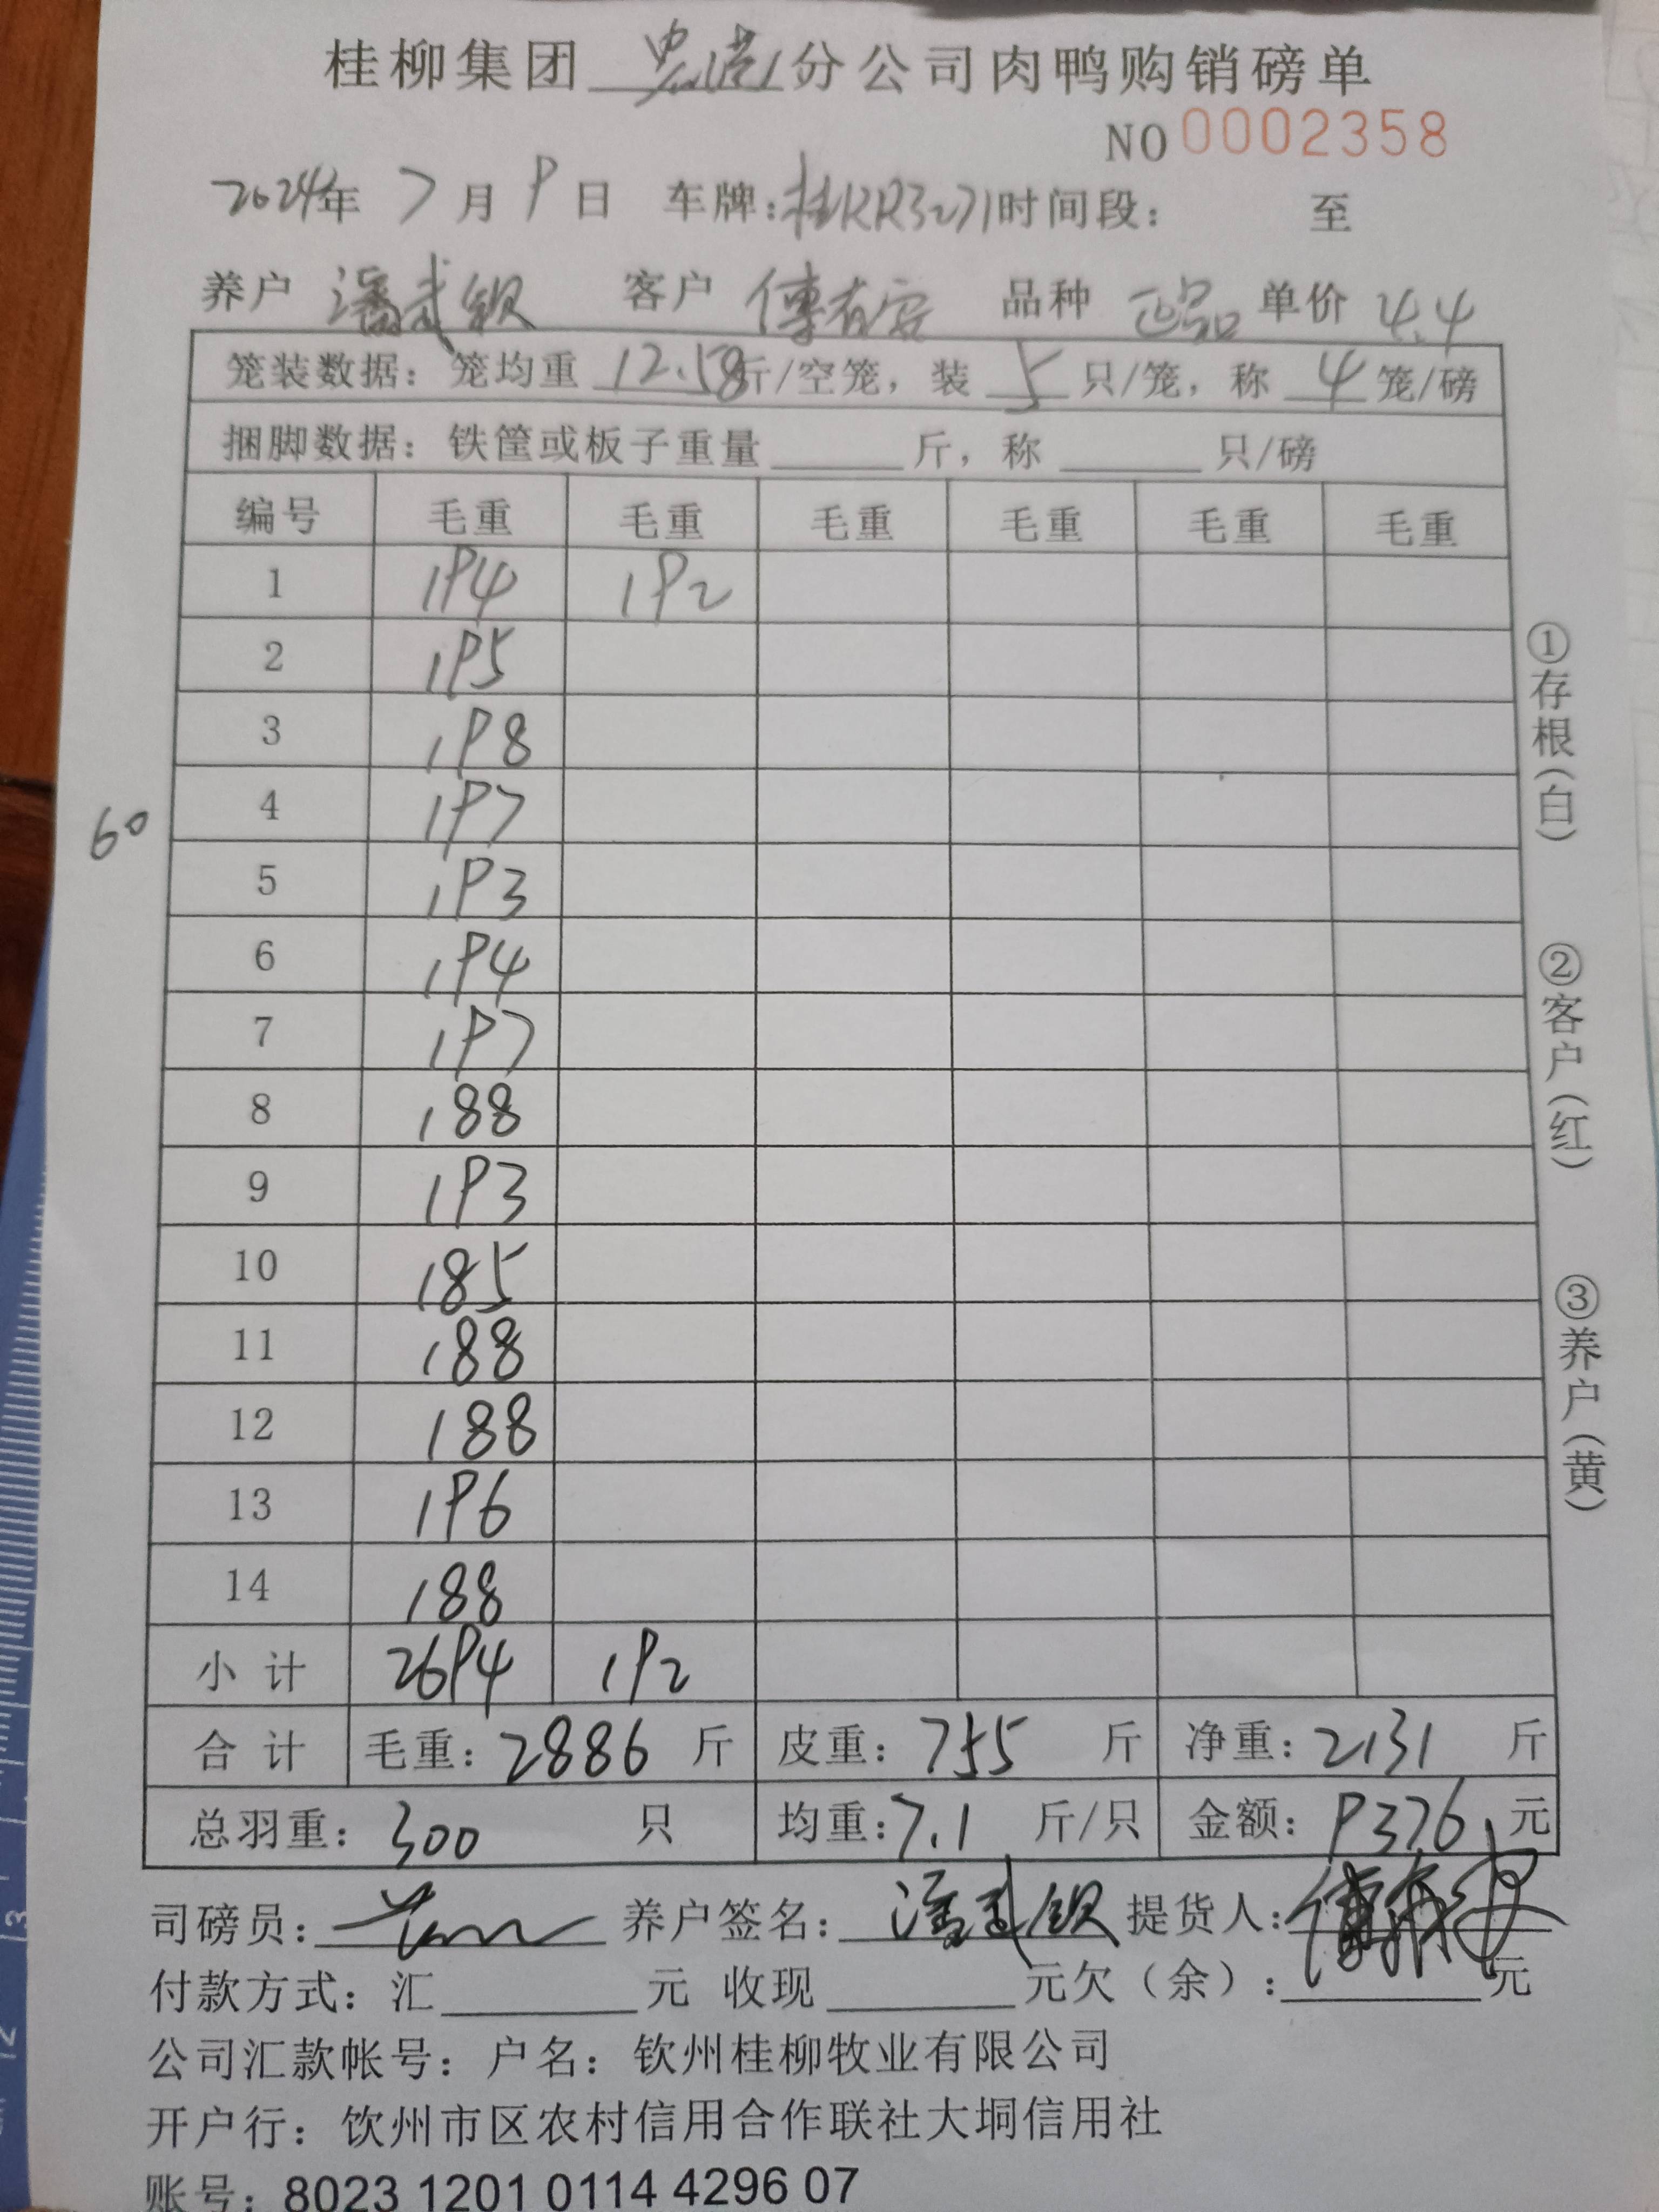 桂柳集团 分公司肉鸭购销磅单
NO 0002358
2024年 7月 9日 车牌:桂KR3271 时间段: 至
养户 潘武钦 客户 傅有安 品种 正品 单价 4.4
笼装数据: 笼均重 12.58 斤/空笼, 装 5 只/笼, 称 4 笼/磅
捆脚数据: 铁筐或板子重量______斤, 称______只/磅
编号 毛重 毛重 毛重 毛重 毛重 毛重
1 194 192
2 195
3 198
4 197
5 193
6 194
7 197
8 188
9 193
10 185
11 188
12 188
13 196
14 188
小计 2694 192
合计 毛重: 2886 斤 皮重: 755 斤 净重: 2131 斤
总羽重: 300 只 均重: 7.1 斤/只 金额: 9376 元
司磅员: 养户签名: 潘武钦 提货人:
付款方式: 汇______元 收现______元欠(余):______元
公司汇款帐号: 户名: 钦州桂柳牧业有限公司
开户行: 钦州市区农村信用合作联社大垌信用社
账号: 8023 1201 0114 4296 07
60
①存根(白)
②客户(红)
③养户(黄)
12
13